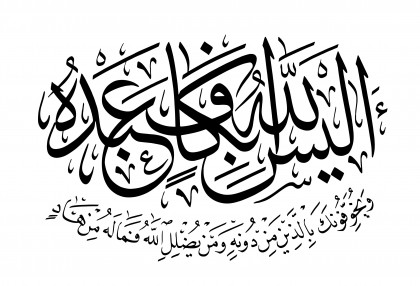 أَلَيْسَ اللَّهُ بِكَافٍ عَبْدَهُ
وَيُخَوِّفُونَكَ بِالَّذِينَ مِن دُونِهِ وَمَن يُضْلِلِ اللَّهُ فَمَا لَهُ مِنْ هَادٍ